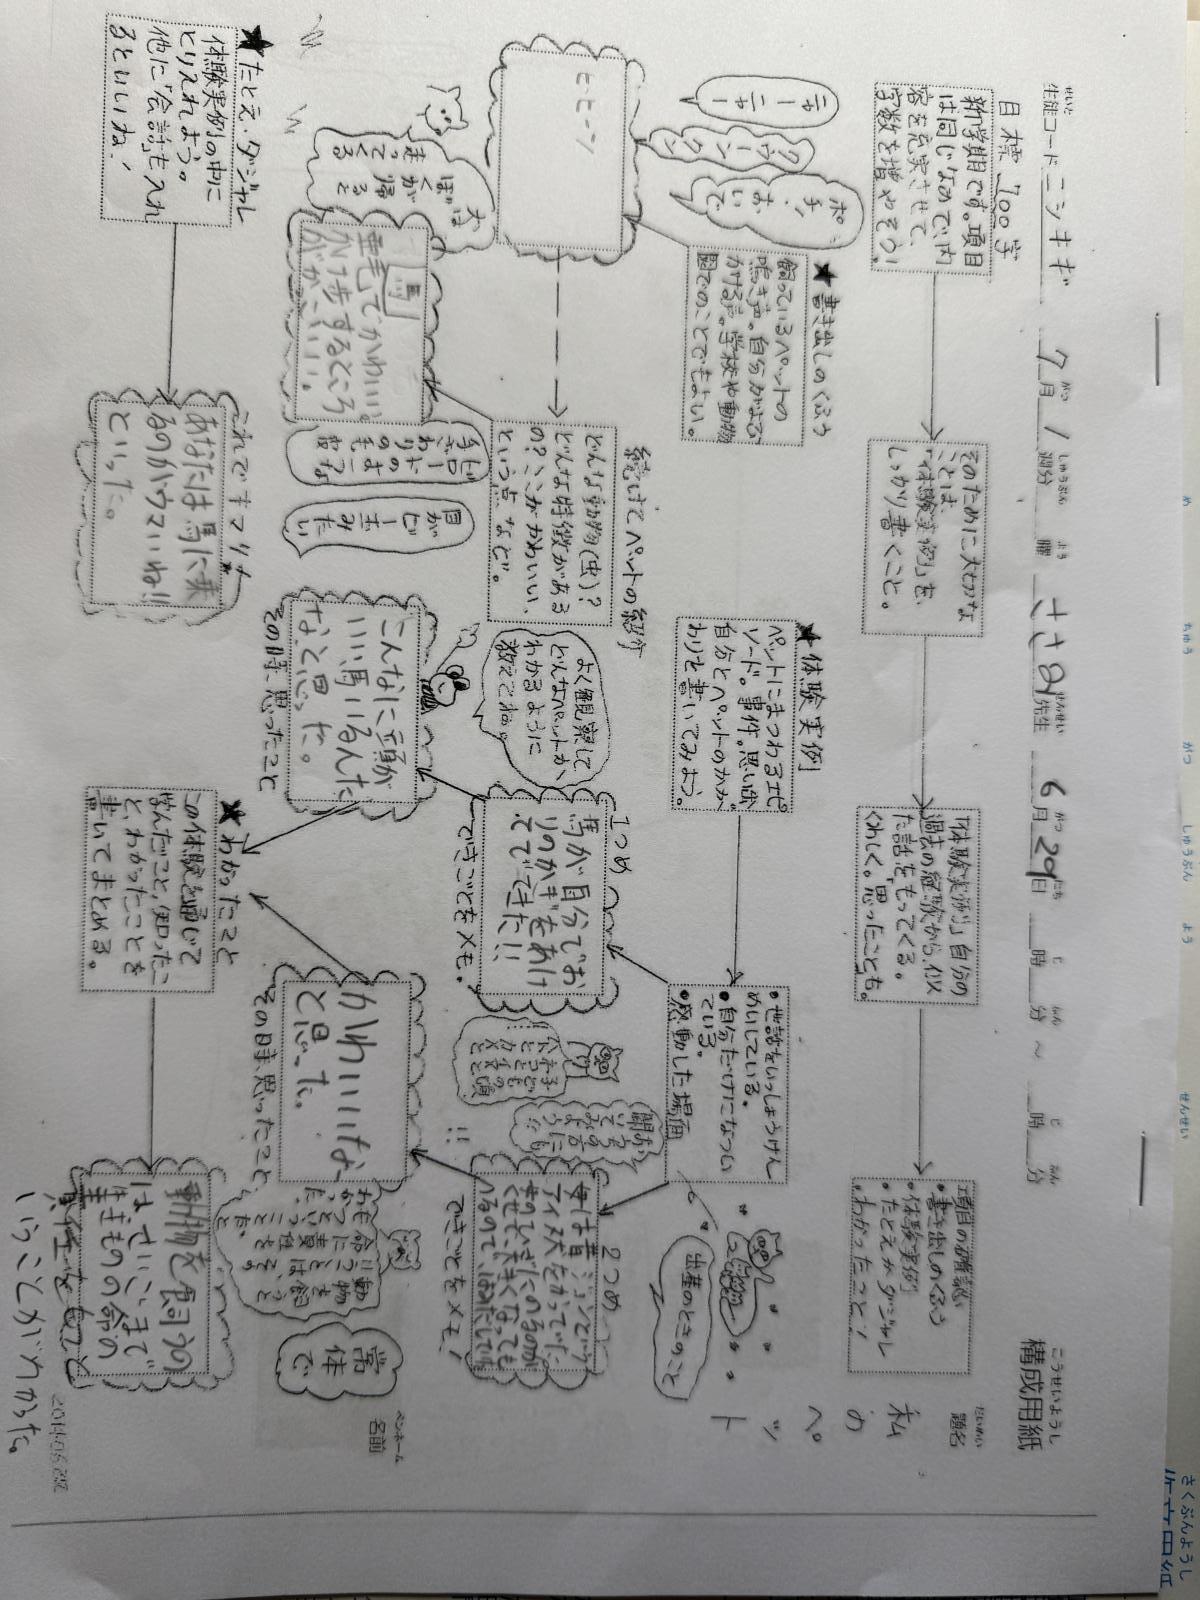 こうせいようし
構成用紙
だいめい
題名
私のペット
ペンネーム
名前
せいと
生徒コード ニシキギ 7月 1週分 曜 ささき先生 6月29日 時 分 ~ 時 分
目標 700字
新学期です。項目
は同じなので内
容を充実させて、
字数を増やそう!
そのために大切な
ことは、
「体験実例」を、
しっかり書くこと。
「体験実例」自分の
過去の経験から、似
た話をもってくる。
くわしく。「思ったことも。
項目の確認
・書き出しのくふう
・体験実例
・たとえかダジャレ
・わかったこと!
ニャーニャー
クゥーンクゥン
ポチ、おいで
★書き出しのくふう
飼っているペットの
鳴き声。自分がよぶ
かける声。学校や動物
園でのことでもよい。
★体験実例
ペットにまつわるエピ
ソード。事件。思い出。
自分とペットのかか
わりを書いてみよう。
・世話をいっしょうけん
めいしている。
・自分だけになつい
ている。
・感動した場面
出産のときのこと
ヒヒーン
続けてペットの紹介
どんな動物(虫)?
どんな特徴がある
の?ここがかわいい、
という点など。
よく観察して
どんなペットか、
わかるように
教えてね。
1つめ
馬が自分でお
りのかぎをあけ
てでてきた!!
できごとをメモ。
2つめ
できごとをメモ!
犬は
ぼくが
帰ると
走ってくる
馬
毛でかわいい。
かけ歩するところ
がかっこいい。
ビロード
のような
手ざわりの毛
目がビー玉みたい
こんなに頭が
いい馬いるんだ
な、と思った。
その時、思ったこと
かわいいな
と思った。
その時、思ったこと
常体で
★たとえ・ダジャレ
体験実例の中に
とりえれよう。
他に「会話」も入れ
るといいね!
これでキマリ★
あなたは馬に乗
るのがウマいね!!
といった。
★わかったこと
この体験を通じて
学んだこと、知ったこ
と、わかったことを
書いてまとめる。
動物を飼うの
はさいごまで
生きものの命の
責任をもつと
いうことがわかった。
さくぶんようし